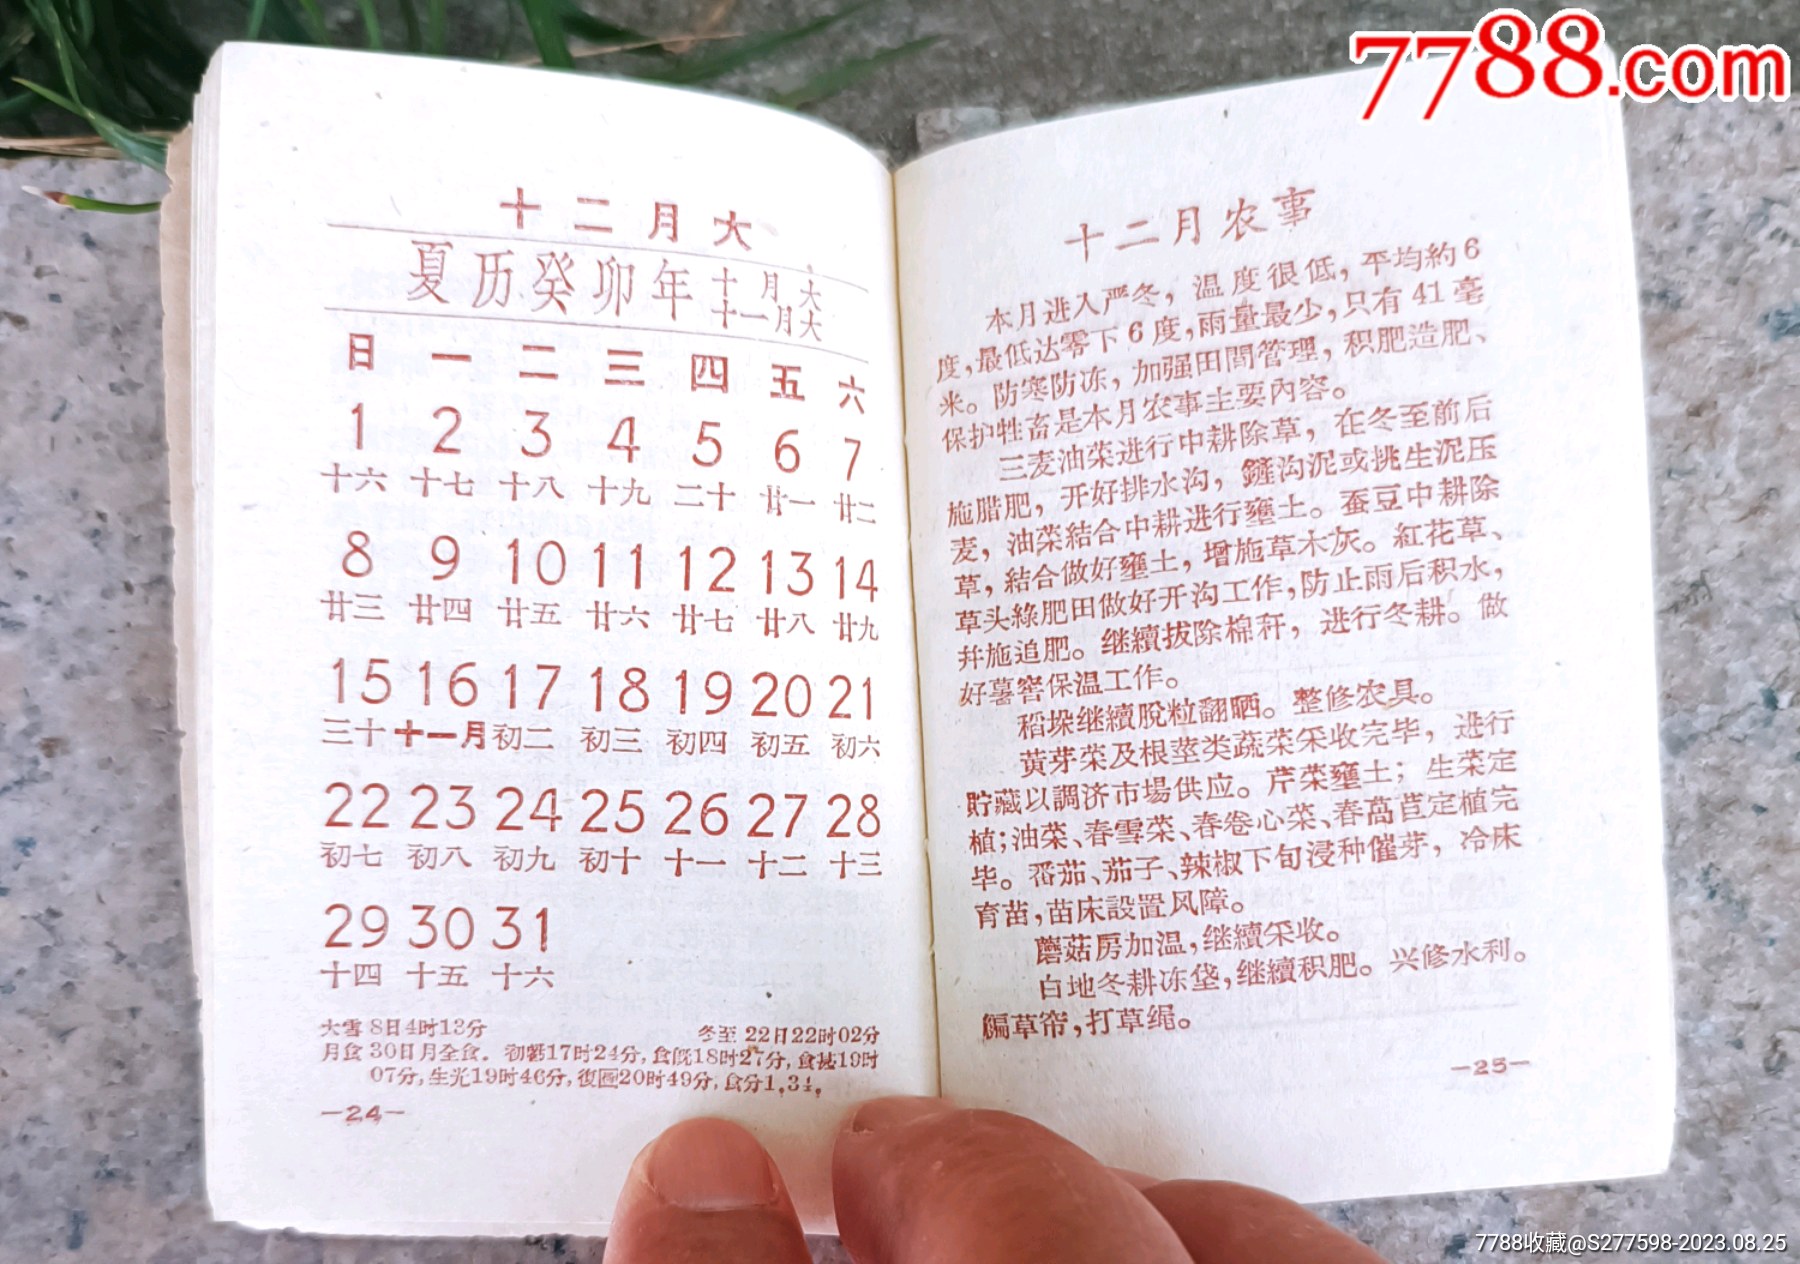 7788.com
十二月大
夏历癸卯年 十月大
十一月大
日 一 二 三 四 五 六
1 2 3 4 5 6 7
十六 十七 十八 十九 二十 廿一 廿二
8 9 10 11 12 13 14
廿三 廿四 廿五 廿六 廿七 廿八 廿九
15 16 17 18 19 20 21
三十 十一月 初二 初三 初四 初五 初六
22 23 24 25 26 27 28
初七 初八 初九 初十 十一 十二 十三
29 30 31
十四 十五 十六
大雪 8日4时13分 冬至 22日22时02分
月食 30日月全食。初亏17时24分,食既18时27分,食甚19时
07分,生光19时46分,復圆20时49分,食分1.34。
—24—
十二月农事
本月进入严冬，温度很低，平均約6
度,最低达零下6度,雨量最少,只有41毫
米。防寒防冻，加强田間管理，积肥造肥、
保护牲畜是本月农事主要內容。
三麦油菜进行中耕除草，在冬至前后
施腊肥，开好排水沟，鏟沟泥或挑生泥压
麦，油菜結合中耕进行壅土。蚕豆中耕除
草，結合做好壅土，增施草木灰。紅花草、
草头綠肥田做好开沟工作,防止雨后积水，
幷施追肥。继續拔除棉秆，进行冬耕。做
好薯窖保温工作。
稻垛继續脫粒翻晒。整修农具。
黄芽菜及根茎类蔬菜采收完毕，进行
貯藏以調济市場供应。芹菜壅土；生菜定
植;油菜、春雪菜、春卷心菜、春萵苣定植完
毕。番茄、茄子、辣椒下旬浸种催芽，冷床
育苗,苗床設置风障。
蘑菇房加温,继續采收。
白地冬耕冻垡,继續积肥。兴修水利。
編草帘,打草绳。
—25—
7788收藏@S277598-2023.08.25